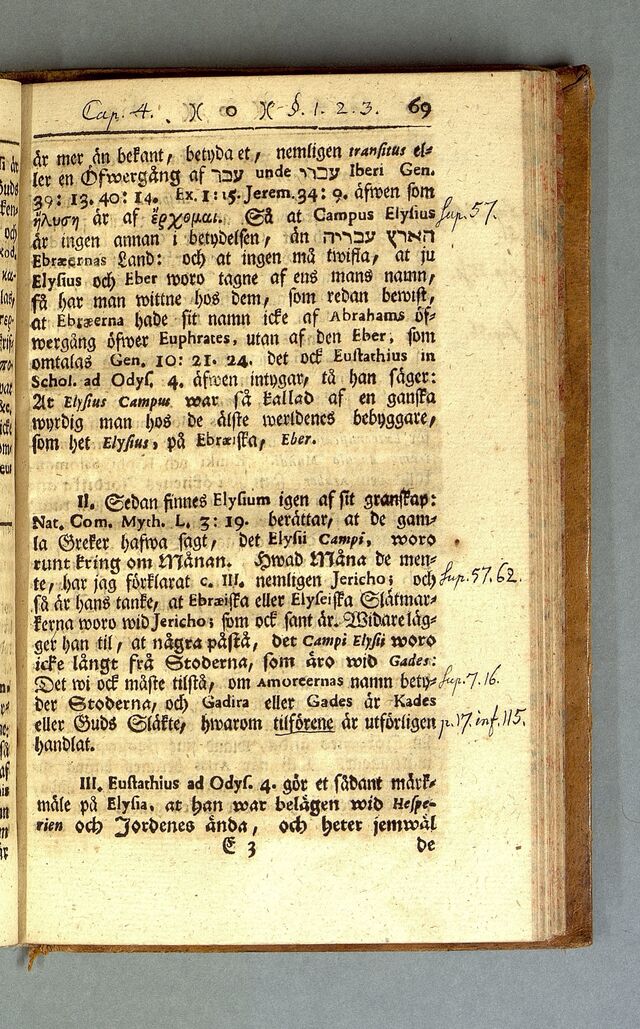 Cap. 4. )( o )( §. 1. 2. 3. 69
är mer än bekant, betyda et, nemligen transitus el-
ler en Öfwergång af עבר unde עברי Iberi Gen.
39: 13. 40: 14. Ex. 1: 15. Jerem. 34: 9. äfwen som
ἤλυση är af ἔρχομαι. Så at Campus Elysius Sup. 57.
är ingen annan i betydelsen, än הארץ עבריה
Ebræernas Land: och at ingen må twifla, at ju
Elysius och Eber woro tagne af ens mans namn,
så har man wittne hos dem, som redan bewist,
at Ebræerna hade sit namn icke af Abrahams öf-
wergång öfwer Euphrates, utan af den Eber, som
omtalas Gen. 10: 21. 24. det ock Eustathius in
Schol. ad Odys. 4. äfwen intygar, tå han säger:
At Elysius Campus war så kallad af en ganska
wyrdig man hos de älste werldenes bebyggare,
som het Elysius, på Ebræiska, Eber.
II. Sedan finnes Elysium igen af sit granskap:
Nat. Com. Myth. L. 3: 19. berättar, at de gam-
la Greker hafwa sagt, det Elysii Campi, woro
runt kring om Månan. Hwad Måna de men-
te, har jag förklarat c. III. nemligen Jericho; och Sup. 57. 62.
så är hans tanke, at Ebræiska eller Elyseiska Slätmar-
kerna woro wid Jericho; som ock sant är. Widare läg-
ger han til, at några påstå, det Campi Elysii woro
icke långt frå Stoderna, som äro wid Gades:
Det wi ock måste tilstå, om Amoreernas namn bety- Sup. 7. 16.
der Stoderna, och Gadira eller Gades är Kades
eller Guds Släkte, hwarom tilförene är utförligen p. 17. inf. 115.
handlat.
III. Eustathius ad Odys. 4. gör et sådant märk-
mäle på Elysia, at han war belägen wid Hespe-
rien och Jordenes ända, och heter jemwäl
E 3 de